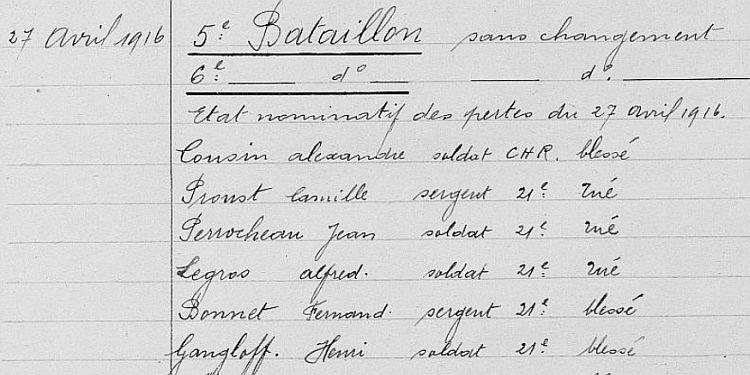 27 Avril 1916 5e Bataillon sans changement
6e ____ do ____ ____ do. ____
Etat nominatif des pertes du 27 avril 1916.
Cousin alexandre soldat CHR. blessé
Proust Camille sergent 21e tué
Perrocheau Jean soldat 21e tué
Legros alfred. soldat 21e tué
Bonnet Fernand. sergent 21e blessé
Gangloff. Henri soldat 21e blessé